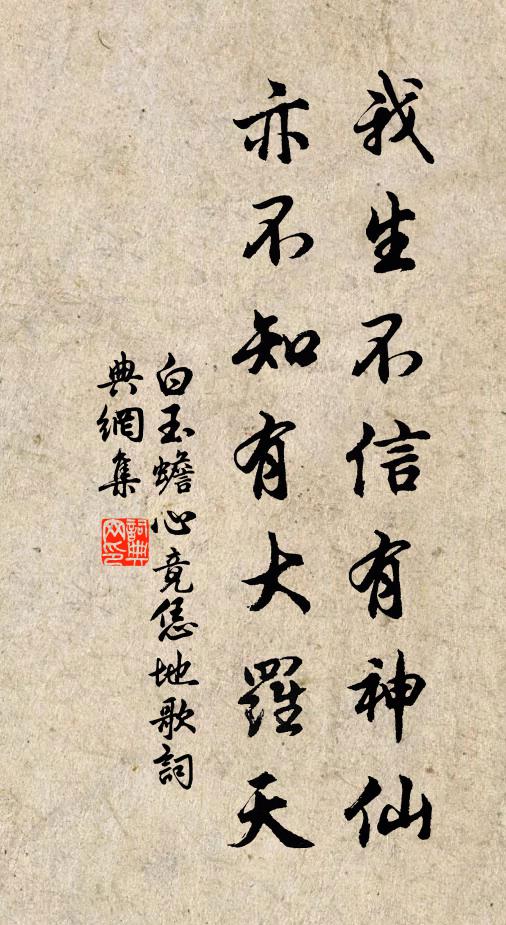 我生不信有神仙
亦不知有大羅天
白玉蟾心竟恁地歌詞
典網集
詞典网印